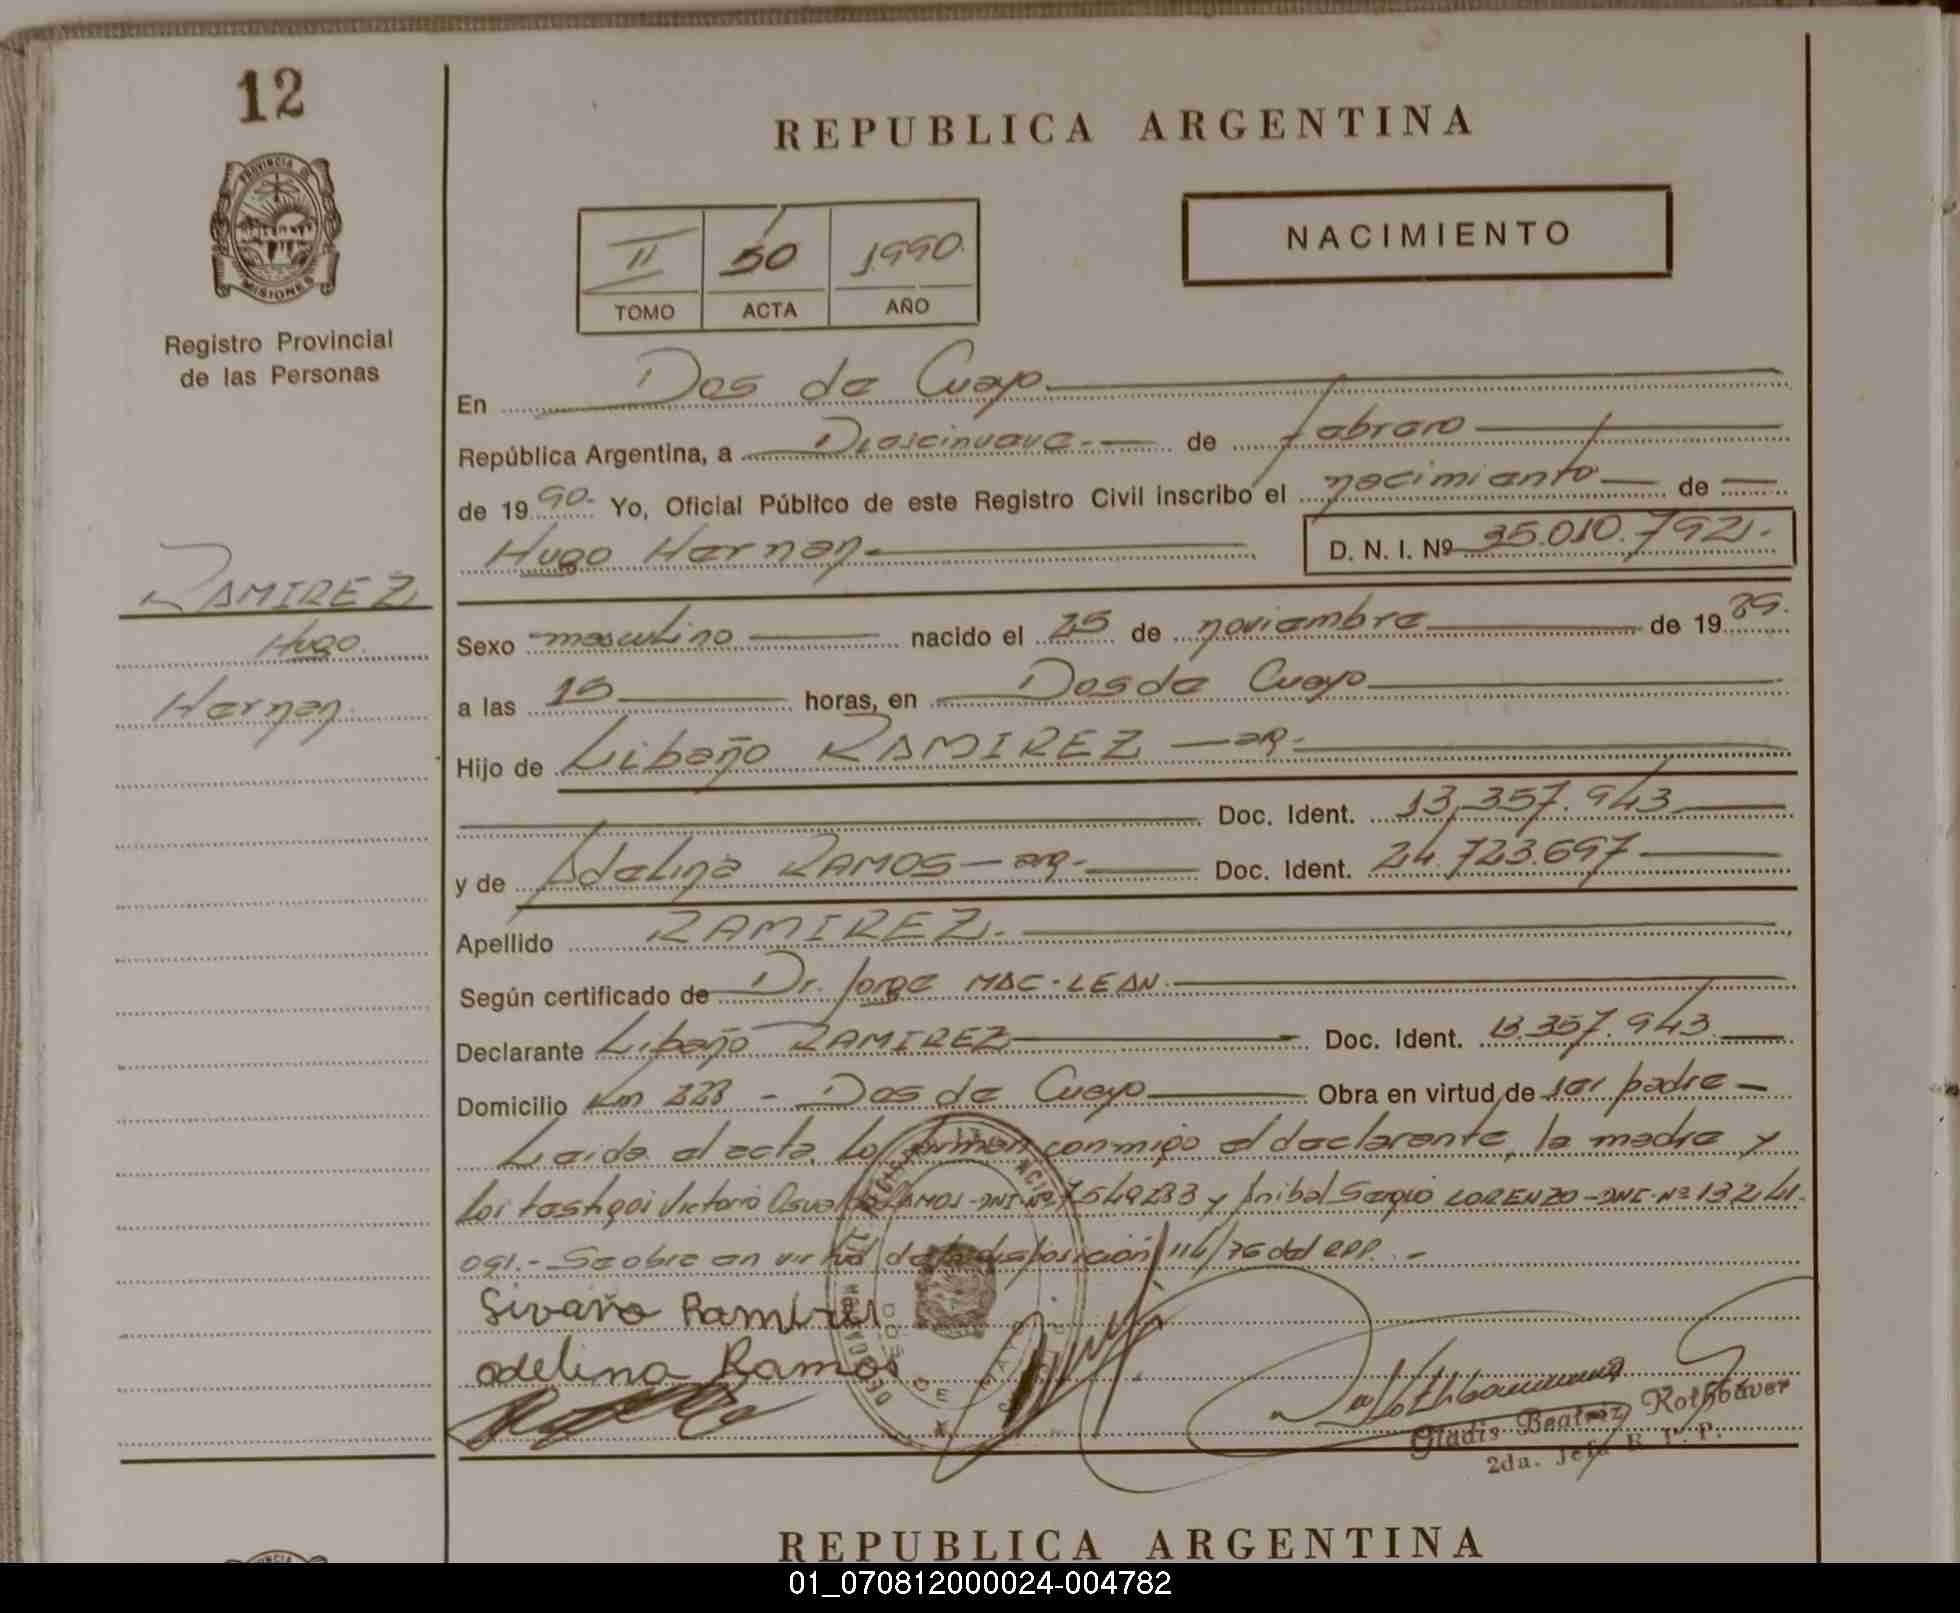 12
REPUBLICA ARGENTINA
PROVINCIA DE
MISIONES
Registro Provincial
de las Personas
NACIMIENTO
II 50 1990.
TOMO ACTA AÑO
En Dos de Cuayo
República Argentina, a Diescinueve.- de febrero
de 19 90.- Yo, Oficial Público de este Registro Civil inscribo el nacimiento de
Hugo Hernan. D. N. I. Nº 35.010.792.-
RAMIREZ
Hugo
Hernan.
Sexo masculino nacido el 25 de noviembre de 19 89.
a las 15 horas, en Dos de Cuayo
Hijo de Libaño RAMIREZ - arg.
Doc. Ident. 13.357.943
y de Adelina RAMOS - arg.- Doc. Ident. 24.723.697
Apellido RAMIREZ.
Según certificado de Dr. Jorge MAC-LEAN.
Declarante Libaño RAMIREZ Doc. Ident. 13.357.943
Domicilio Km 228 - Dos de Cuayo Obra en virtud de ser padre
Leida el acta, lo firman conmigo el declarante, la madre y
los testigos Victorio Osvaldo RAMOS-DNI-Nº 7549233 y Anibal Sergio LORENZO-DNI-Nº 13241.
091.- Se obra en virtud de la disposición 114/76 del RPP.-
Sivaño Ramirez
adelina Ramos
Gladis Beatriz Rothbauer
2da. Jefa R. P. P.
REPUBLICA ARGENTINA
01_070812000024-004782